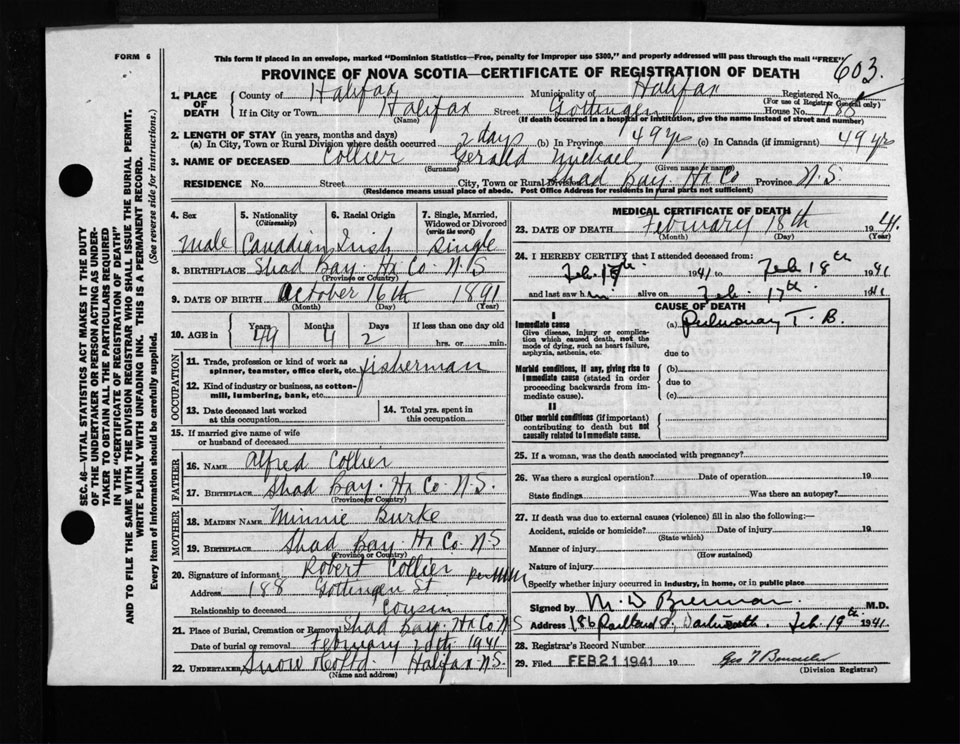 FORM 6
This form if placed in an envelope, marked "Dominion Statistics—Free, penalty for improper use $300," and properly addressed will pass through the mail "FREE"
603.
PROVINCE OF NOVA SCOTIA—CERTIFICATE OF REGISTRATION OF DEATH
1. PLACE OF DEATH
County of Halifax Municipality of Halifax Registered No.
(For use of Registrar General only)
If in City or Town Halifax Street Gottingen House No. 188
(Name) (If death occurred in a hospital or institution, give the name instead of street and number)
2. LENGTH OF STAY (in years, months and days)
(a) In City, Town or Rural Division where death occurred 2 days (b) In Province 49 yrs (c) In Canada (if immigrant) 49 yrs
3. NAME OF DECEASED Collier Gerald Michael
(Surname) (Given name or names)
RESIDENCE No. Street City, Town or Rural Division Shad Bay. Hx Co Province N.S.
(Residence means usual place of abode. Post Office Address for residents in rural parts not sufficient)
4. Sex
Male
5. Nationality (Citizenship)
Canadian
6. Racial Origin
Irish
7. Single, Married, Widowed or Divorced (write the word)
Single
8. BIRTHPLACE Shad Bay Hx Co. N.S
(Province or Country)
9. DATE OF BIRTH October 16th 1891
(Month) (Day) (Year)
10. AGE in Years Months Days If less than one day old
49 4 2 hrs. or min.
OCCUPATION
11. Trade, profession or kind of work as spinner, teamster, office clerk, etc. fisherman
12. Kind of industry or business, as cotton-mill, lumbering, bank, etc.
13. Date deceased last worked at this occupation
14. Total yrs. spent in this occupation
15. If married give name of wife or husband of deceased
FATHER
16. NAME Alfred Collier
17. BIRTHPLACE Shad Bay. Hx Co. N.S.
(Province or Country)
MOTHER
18. MAIDEN NAME Minnie Burke
19. BIRTHPLACE Shad Bay. Hx Co. N.S
(Province or Country)
20. Signature of informant Robert Collier per
Address 188 Gottingen St
Relationship to deceased Cousin
21. Place of Burial, Cremation or Removal Shad Bay. Hx Co N S
Date of burial or removal February 20th 1941
22. UNDERTAKER Snow & Co Ltd. Halifax N.S.
(Name and address)
MEDICAL CERTIFICATE OF DEATH
23. DATE OF DEATH February 18th 1941.
(Month) (Day) (Year)
24. I HEREBY CERTIFY that I attended deceased from:
Feb. 1941 to Feb 18th 1941
and last saw him alive on Feb. 17th 1941
CAUSE OF DEATH
I
Immediate cause
Give disease, injury or complication which caused death, not the mode of dying, such as heart failure, asphyxia, asthenia, etc.
(a) Pulmonary T. B.
due to
Morbid conditions, if any, giving rise to immediate cause (stated in order proceeding backwards from immediate cause).
(b)
due to
(c)
II
Other morbid conditions (if important) contributing to death but not causally related to immediate cause.
25. If a woman, was the death associated with pregnancy?
26. Was there a surgical operation? Date of operation 19
State findings Was there an autopsy?
27. If death was due to external causes (violence) fill in also the following:—
Accident, suicide or homicide? Date of injury 19
(State which)
Manner of injury
(How sustained)
Nature of injury
Specify whether injury occurred in industry, in home, or in public place
Signed by M. D Brennan. M.D.
Address 186 Portland St, Dartmouth. Feb. 19th 1941.
28. Registrar's Record Number
29. Filed FEB 21 1941 19
(Division Registrar)
SEC. 46—VITAL STATISTICS ACT MAKES IT THE DUTY
OF THE UNDERTAKER OR PERSON ACTING AS UNDER-
TAKER TO OBTAIN ALL THE PARTICULARS REQUIRED
IN THE "CERTIFICATE OF REGISTRATION OF DEATH"
AND TO FILE THE SAME WITH THE DIVISION REGISTRAR WHO SHALL ISSUE THE BURIAL PERMIT.
WRITE PLAINLY WITH UNFADING INK. THIS IS A PERMANENT RECORD.
Every item of information should be carefully supplied. (See reverse side for instructions.)